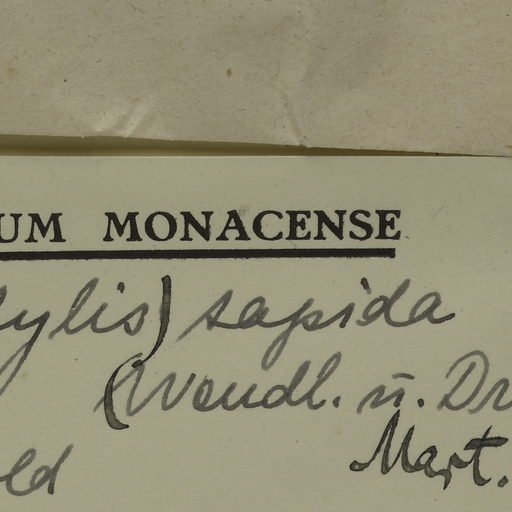 UM MONACENSE
ylis) sapida
(Wendl. u. Dr
ld Mart.